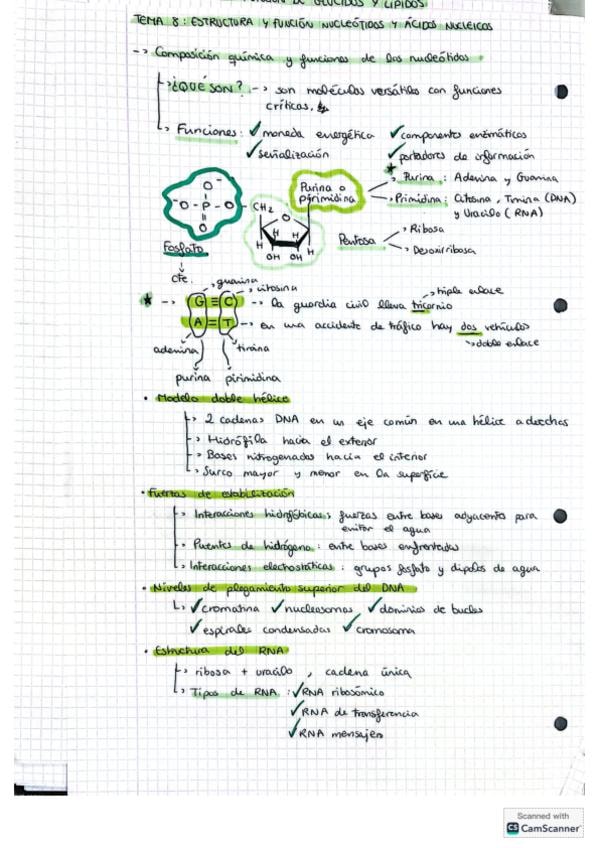 DE GLÚCIDOS Y LÍPIDOS
TEMA 8: ESTRUCTURA Y FUNCIÓN NUCLEÓTIDOS Y ÁCIDOS NUCLEICOS
-> Composición química y funciones de los nucleótidos
¿QUÉ SON? -> son moléculas versátiles con funciones
críticas.
Funciones: ✓ moneda energética ✓ componentes enzimáticos
✓ señalización ✓ portadores de información
Purina o
pirimidina
Purina: Adenina y Guanina
Primidina: Citosina, Timina (DNA)
y Uracilo (RNA)
O⁻
⁻O - P - O
O
CH₂
O
H H
H H
OH OH
Fosfato
Pentosa
Ribosa
Desoxirribosa
cte.
guanina
citosina
triple enlace
★ -> G ≡ C -> La guardia civil lleva tricornio
A = T -> en una accidente de tráfico hay dos vehículos
doble enlace
adenina timina
purina pirimidina
• Modelo doble hélice
-> 2 cadenas DNA en un eje común en una hélice a dechas
-> Hidrófila hacia el exterior
-> Bases nitrogenadas hacia el interior
-> Surco mayor y menor en la superficie
• Fuerzas de estabilización
-> Interacciones hidrofóbicas: fuerzas entre bases adyacentes para
evitar el agua
-> Puentes de hidrógeno: entre bases enfrentadas
-> Interacciones electrostáticas: grupos fosfato y dipolos de agua
• Niveles de plegamiento superior del DNA
-> ✓ cromatina ✓ nucleosomas ✓ dominios de bucles
✓ espirales condensadas ✓ cromosoma
• Estructura del RNA
-> ribosa + uracilo, cadena única
-> Tipos de RNA: ✓ RNA ribosómico
✓ RNA de transferencia
✓ RNA mensajero
Scanned with
CS CamScanner